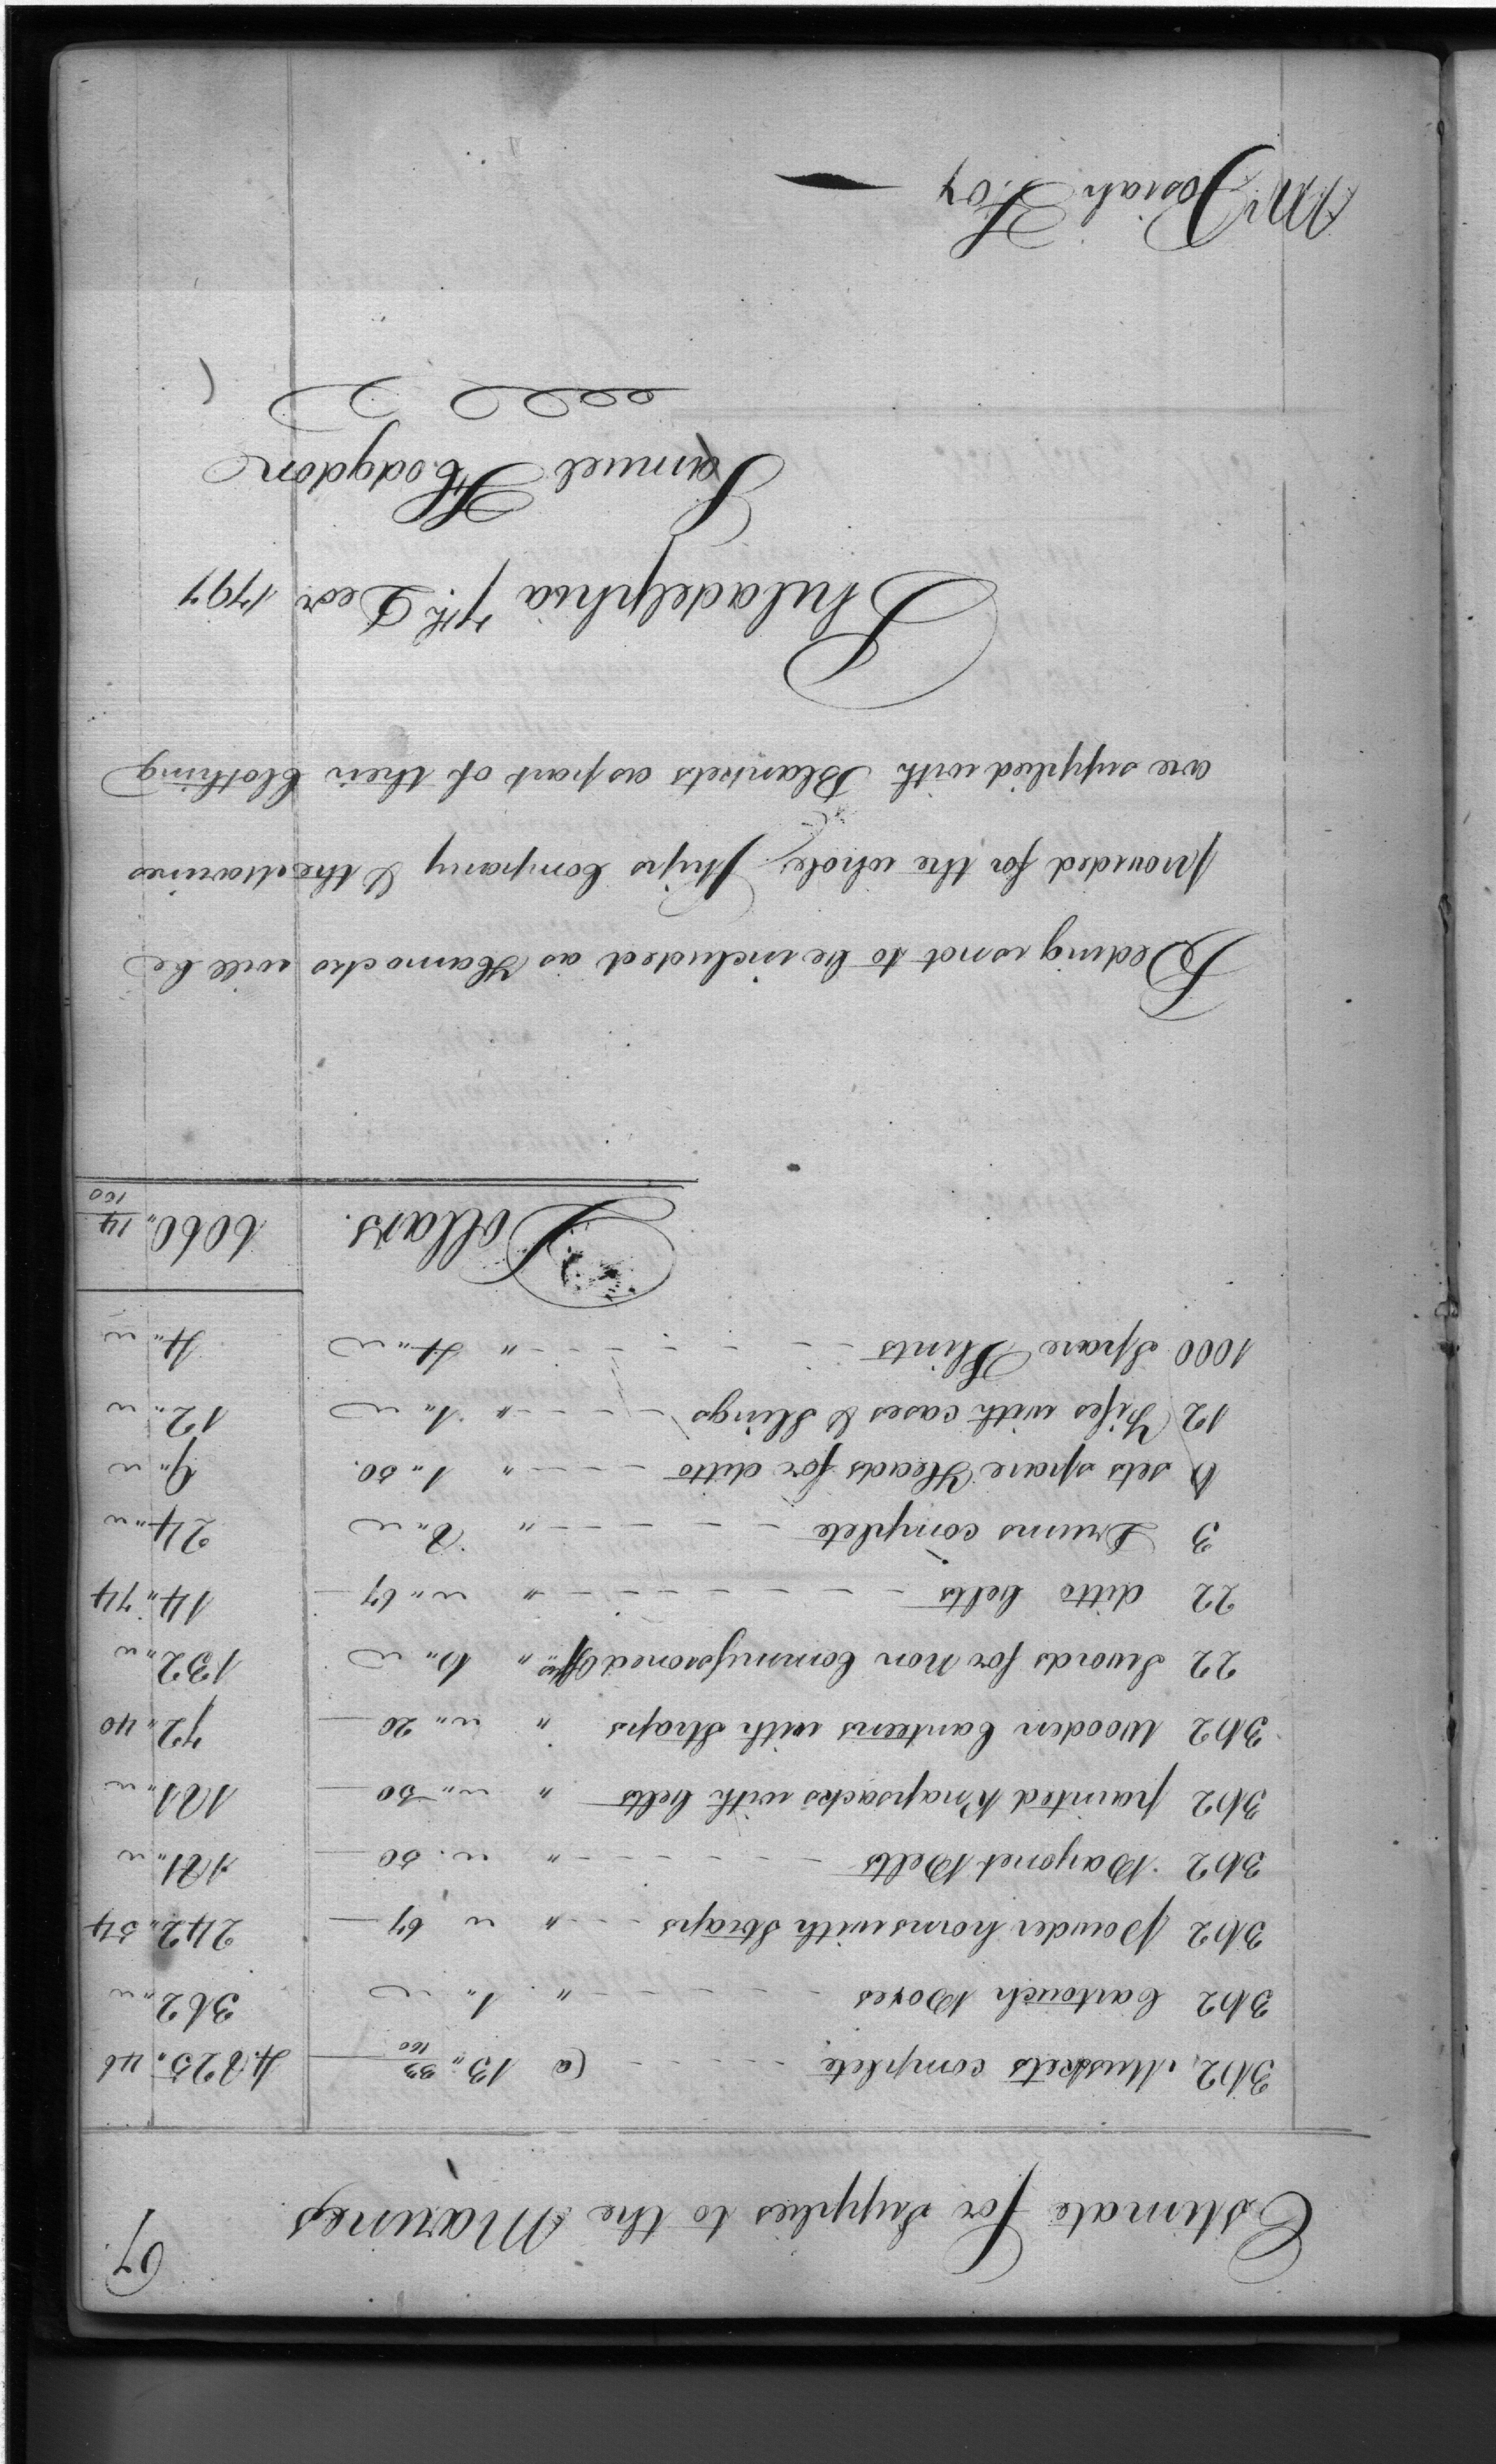 67.
Estimate for Supplies to the Marines
362, Muskets complete - - - - - @ 13 " 33/100 4.825. 46
362 Cartouch Boxes - - - - - " 1 " " 362 " "
362 Powder horns with Straps - - " " 67 242 " 54
362 Bayonet Belts - - - - - - " " . 50 181 " "
362 painted Knapsacks with belts " " " 50 181 " "
362 Wooden Canteens with Straps " " " 20 72 " 40
22 Swords for Non Commissioned Offrs " 6 " " 132 " "
22 ditto belts - - - - - - - " " " 67 14 " 74
3 Drums complete - - - - - " 8 " " 24 " "
6 sets spare Heads for ditto - - - " 1 " 50. 9 " "
12 Fifes with cases & Slings - - - " 1 " " 12 " "
1000 Spare Flints - - - - - - - " 4 " " 4 " "
Dollars. 6060 " 14/100
Beding is not to be included as Hamocks will be
provided for the whole Ships Company & the Marines
are supplied with Blankets as part of their Clothing
Philadelphia 7th. Decr 1797
Samuel Hodgdon
Mr Josiah Fox